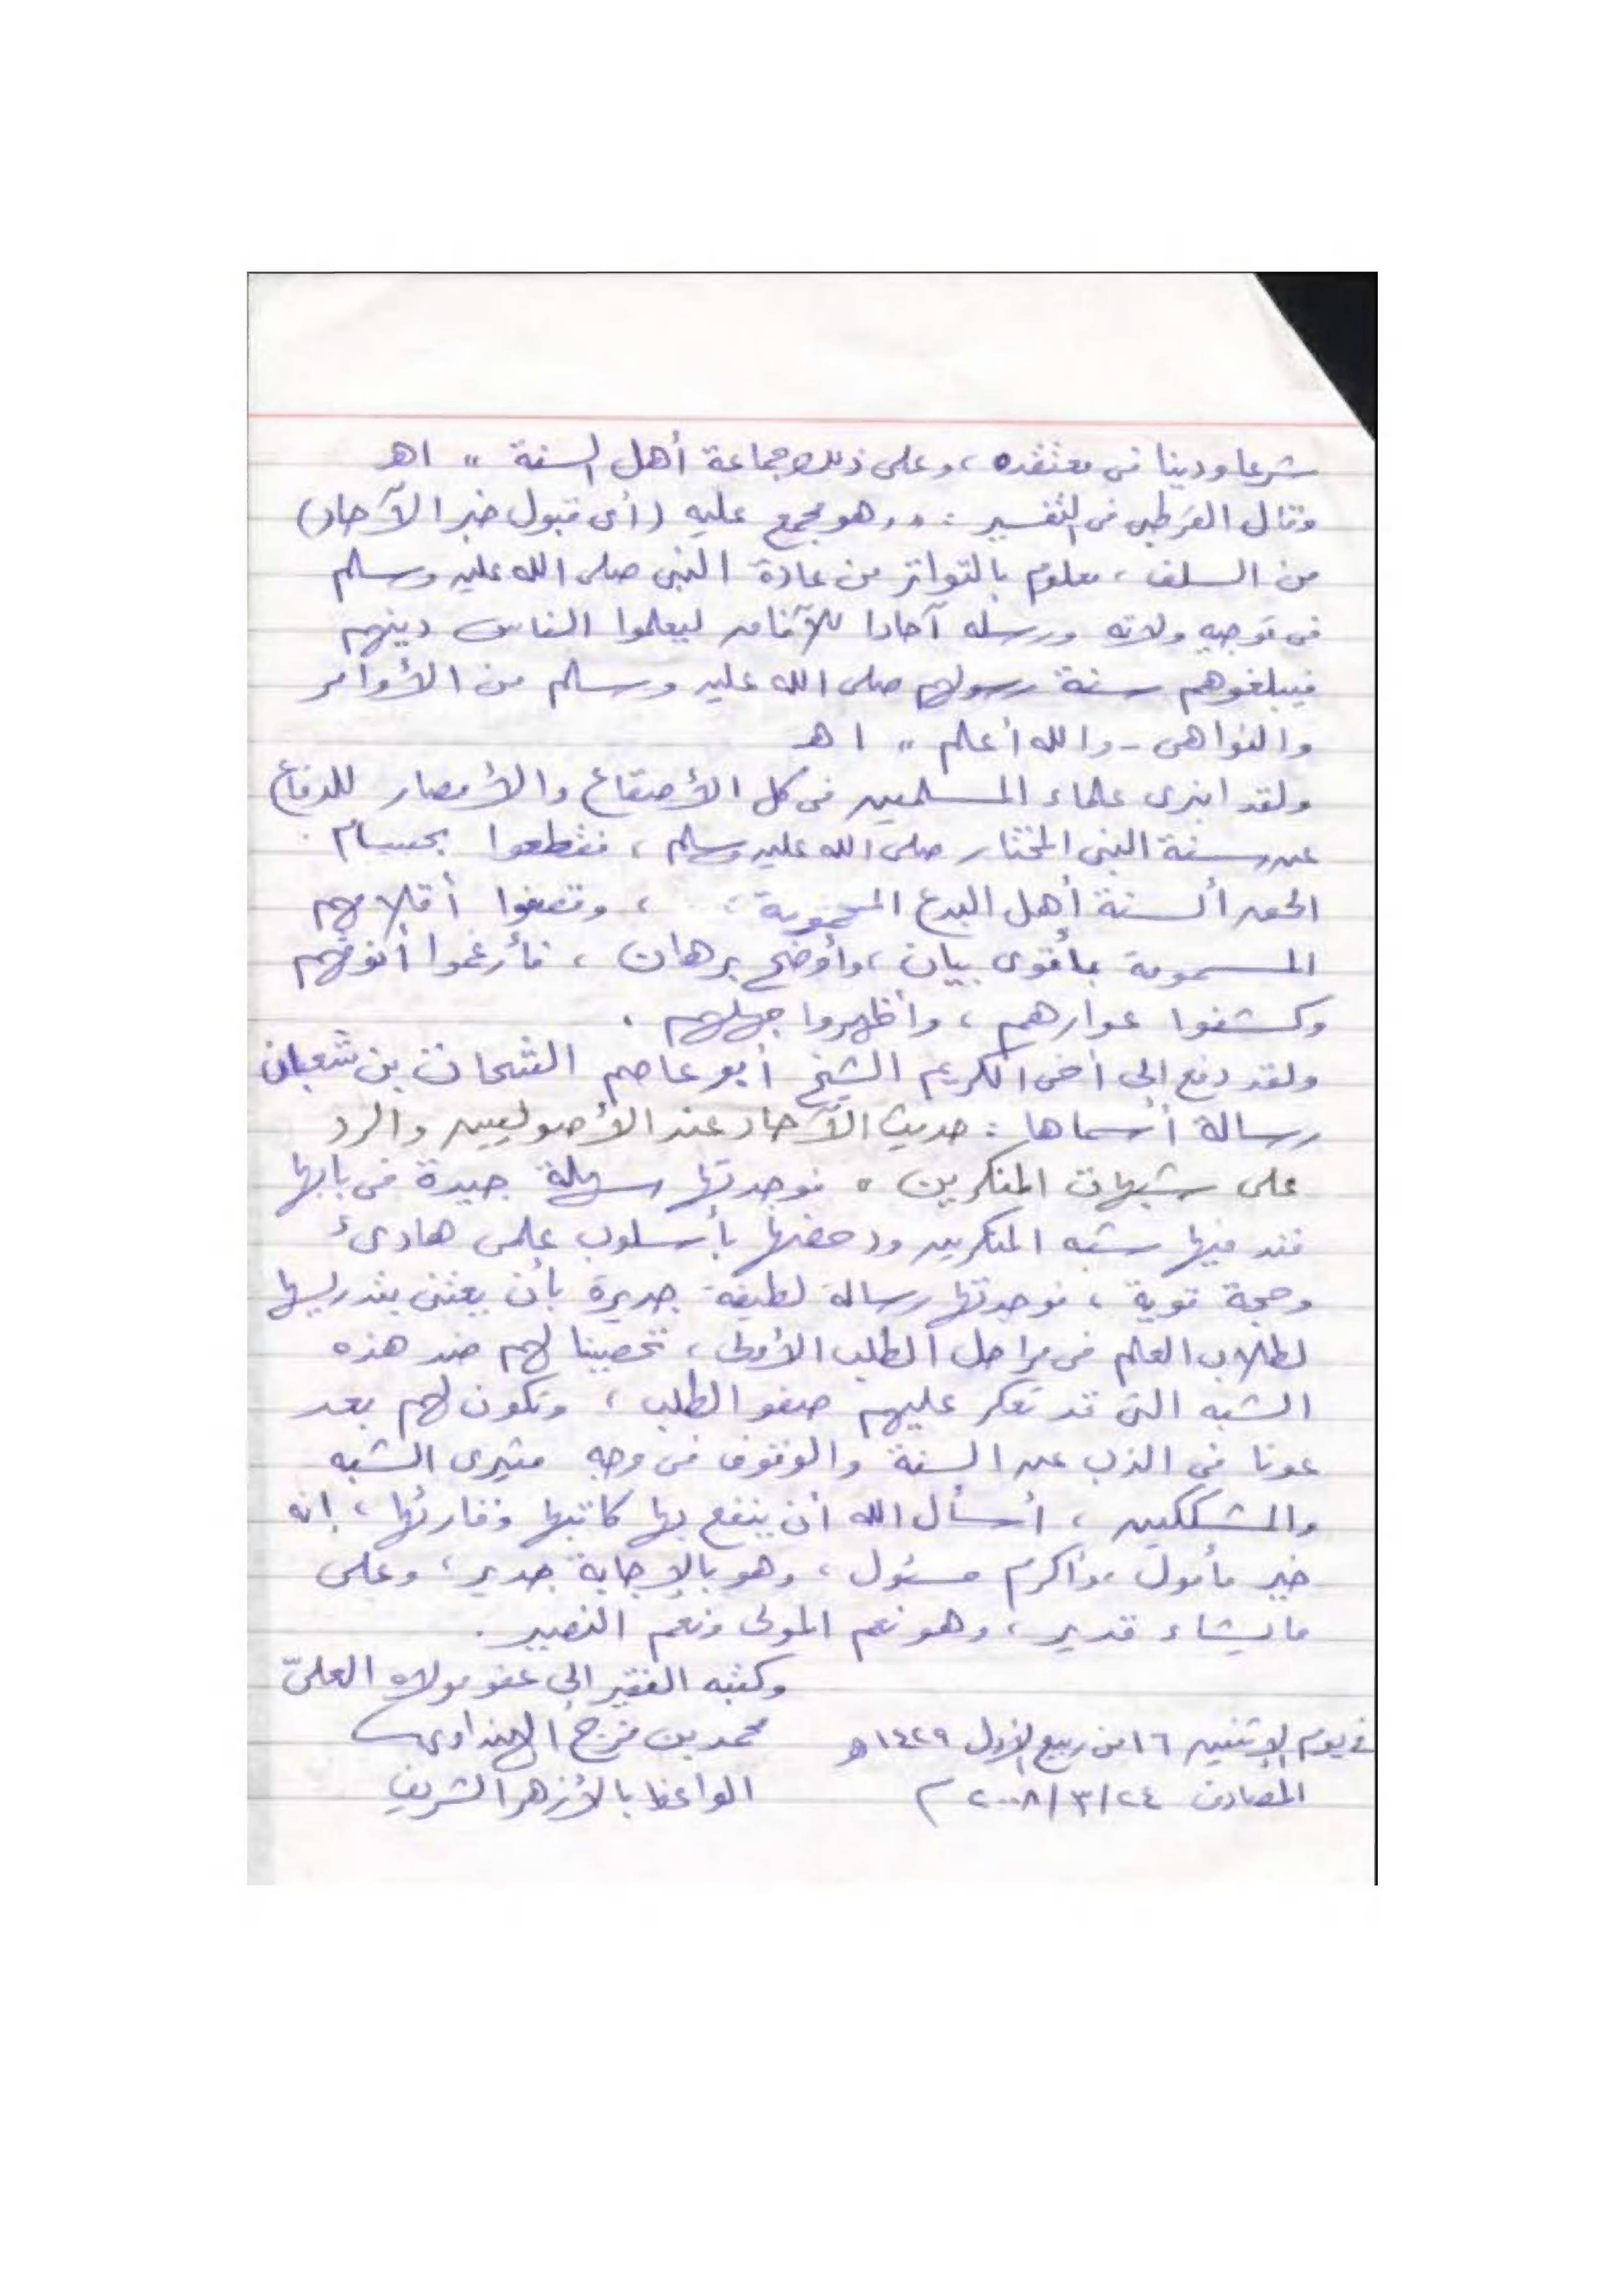 شرعا ودينا فى معتقده، وعلى ذلك جماعة أهل السنة " اهـ
وقال القرطبى فى التفسير : " وهو مجمع عليه (أى قبول خبر الآحاد)
من السلف، معلوم بالتواتر من عادة النبى صلى الله عليه وسلم
فى توجيه ولاته ورسله آحادا للآفاق ليعلموا الناس دينهم
فيبلغوهم سنة رسولهم صلى الله عليه وسلم من الأوامر
والنواهى - والله أعلم " اهـ
ولقد انبرى علماء المسلمين فى كل الأصقاع والأمصار للدفاع
عن سنة النبى المختار صلى الله عليه وسلم، فقطعوا بحسام
الحق ألسنة أهل البدع ، وقصفوا أقلامهم
المسمومة بأقوى بيان، وأوضح برهان، فأرغموا أنوفهم
وكشفوا عوارهم، وأظهروا جهلهم .
ولقد دفع إلى أخى الكريم الشيخ أبو عاصم الشحات بن شعبان
رسالة أسماها : حديث الآحاد عند الأصوليين والرد
على شبهات المنكرين ، فوجدتها سهلة جيدة فى بابها
فند فيها شبه المنكرين ودحضها بأسلوب علمى هادىء
وحجة قوية، فوجدتها رسالة لطيفة جديرة بأن يعتنى بتدريسها
لطلاب العلم فى مراحل الطلب الأولى، تحصينا لهم ضد هذه
الشبه التى قد تعكر عليهم صفو الطلب، وتكون لهم بعد
عونا فى الذب عن السنة والوقوف فى وجه مثيرى الشبه
والمشككين، أسأل الله أن ينفع بها كاتبها وقارئها، إنه
خير مأمول وأكرم مسئول، وهو بالإجابة جدير، وعلى
ما يشاء قدير، وهو نعم المولى ونعم النصير .
وكتبه الفقير إلى عفو مولاه العلىّ
فى يوم الإثنين ١٦ من ربيع الأول ١٤٢٩ هـ محمد بن فرج الهنداوى
المصادف ٢٤/٣/٢٠٠٨ م الواعظ بالأزهر الشريف